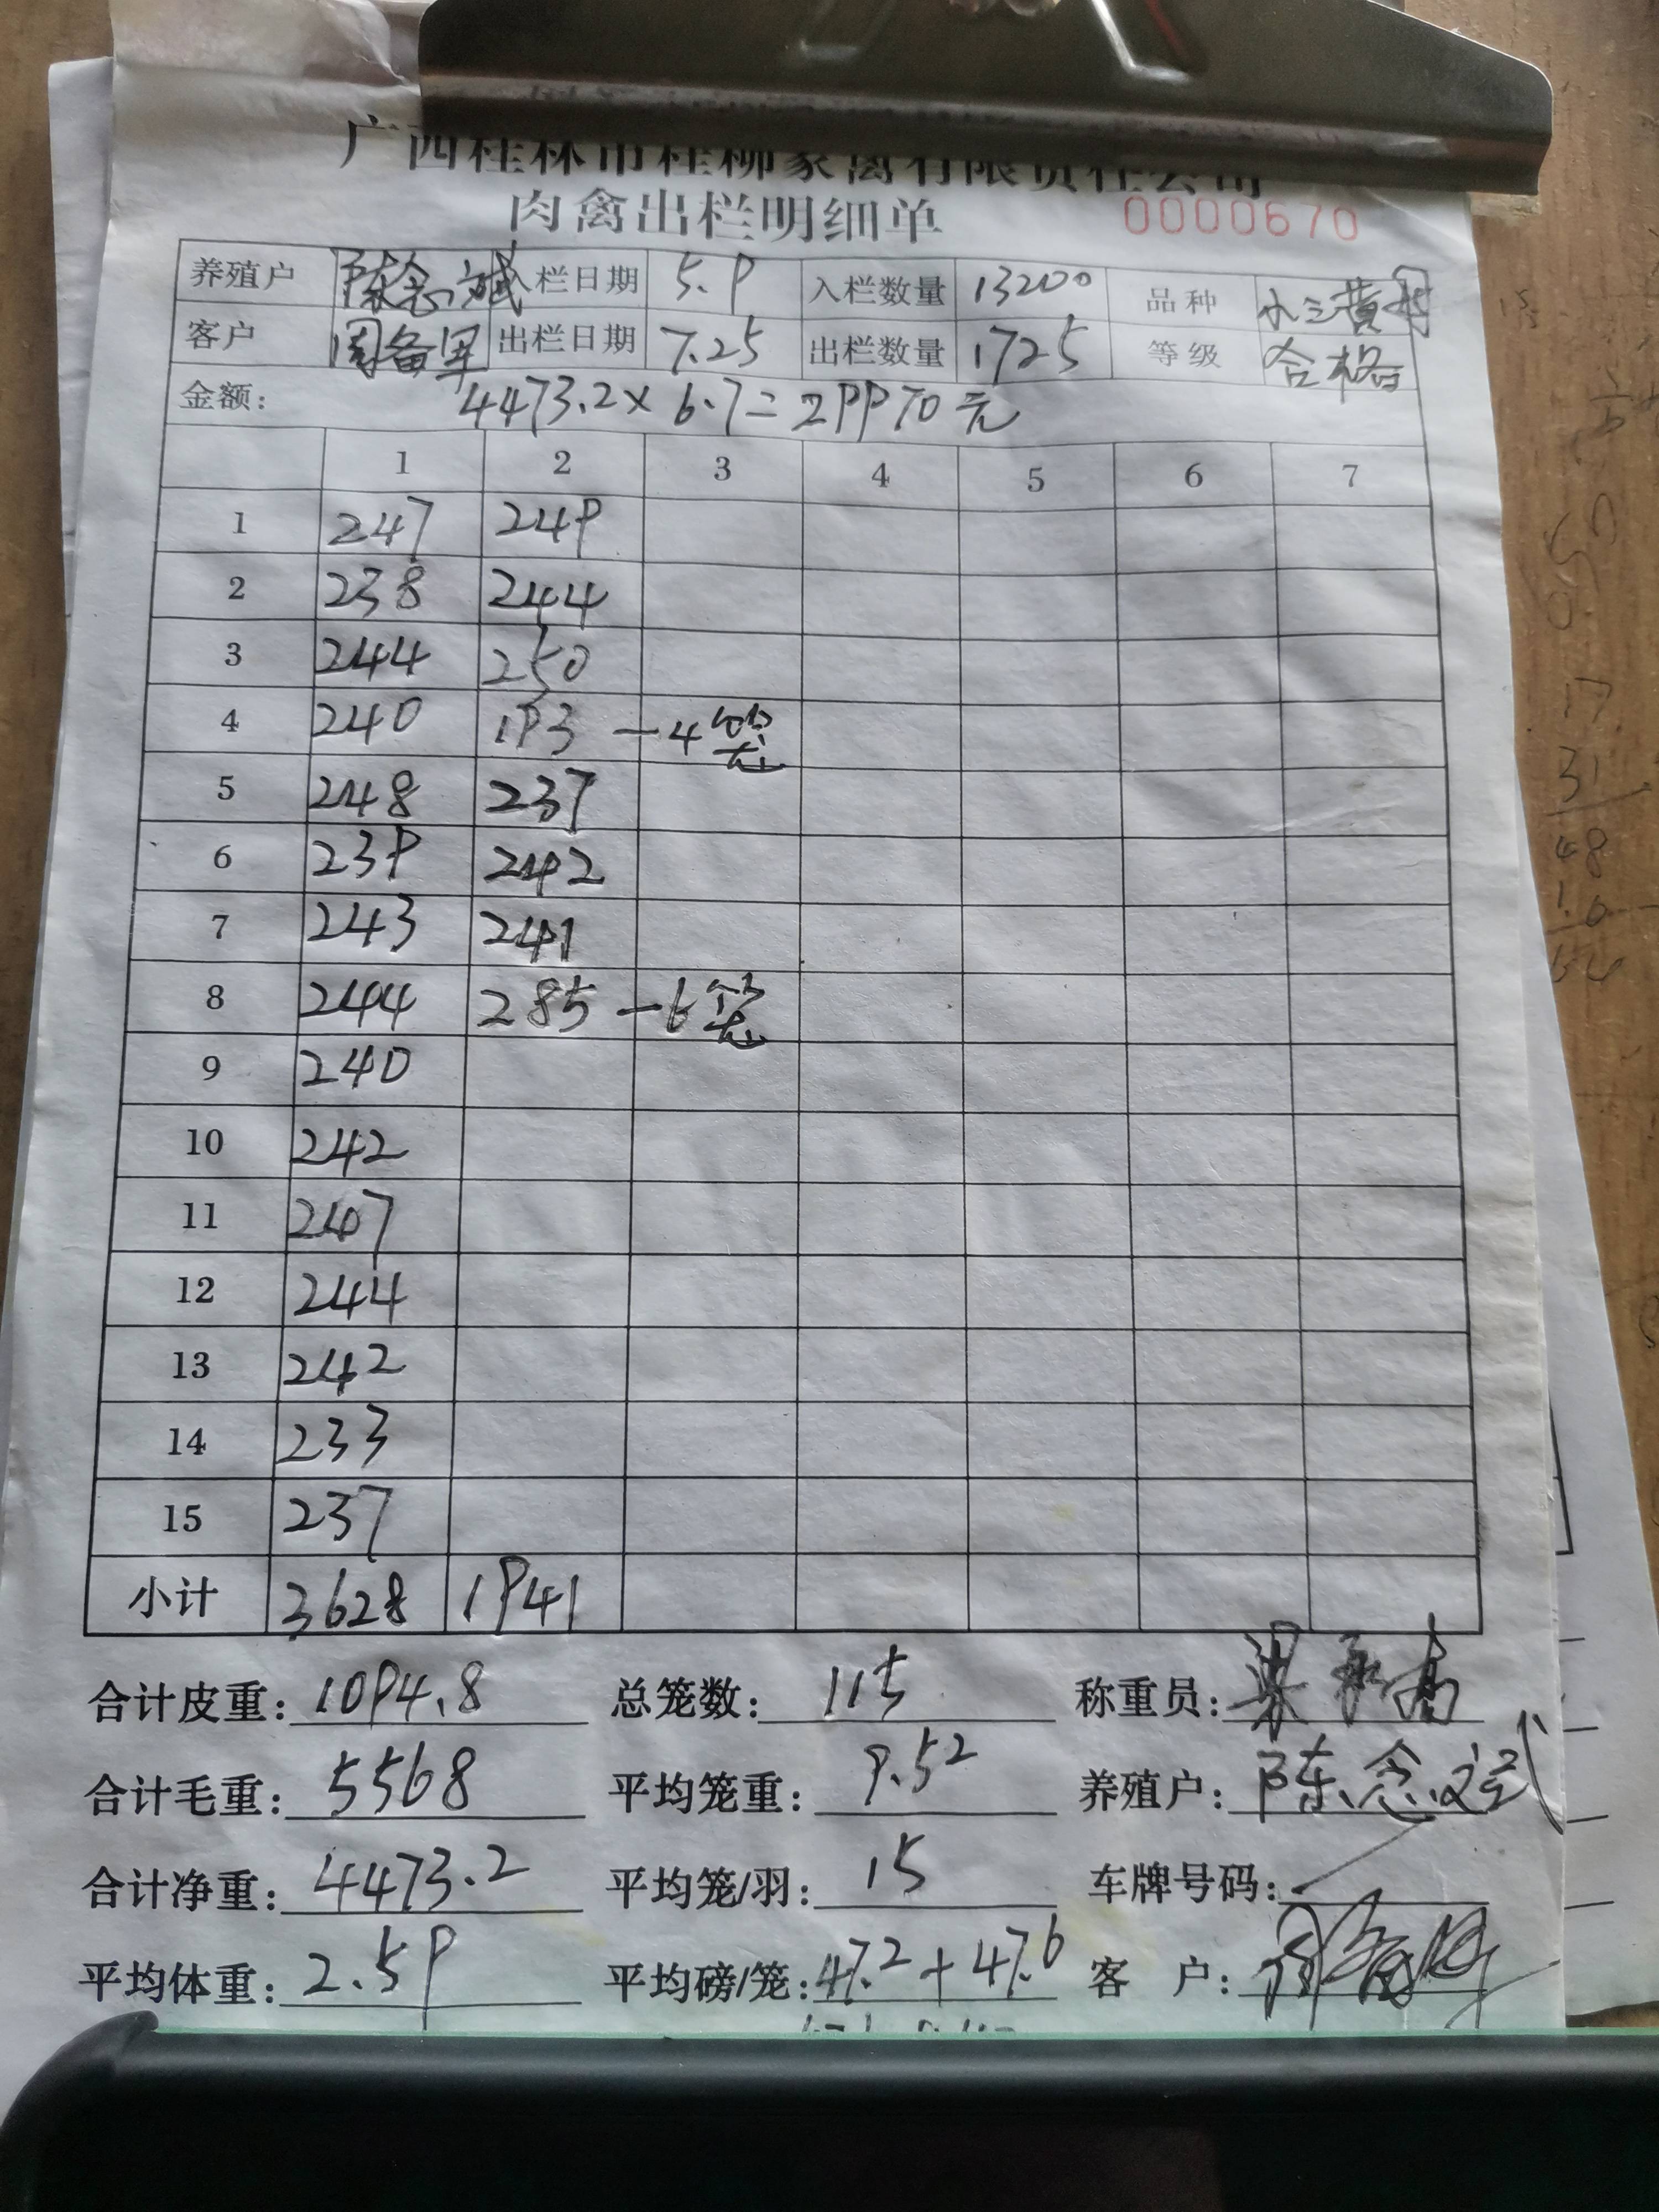 广西桂林市桂柳家禽有限责任公司
肉禽出栏明细单 0000670
养殖户 陈念斌 入栏日期 5.9 入栏数量 13200 品种 小三黄母
客户 周备军 出栏日期 7.25 出栏数量 1725 等级 合格
金额: 4473.2×6.7=29970元
1 2 3 4 5 6 7
1 247 249
2 238 244
3 244 250
4 240 193 —4笼
5 248 237
6 239 242
7 243 241
8 244 285 —6笼
9 240
10 242
11 247
12 244
13 242
14 233
15 237
小计 3628 1941
合计皮重: 1094.8 总笼数: 115 称重员:
合计毛重: 5568 平均笼重: 9.52 养殖户: 陈念斌
合计净重: 4473.2 平均笼/羽: 15 车牌号码:
平均体重: 2.59 平均磅/笼: 47.2+47.6 客 户:
17
31
48